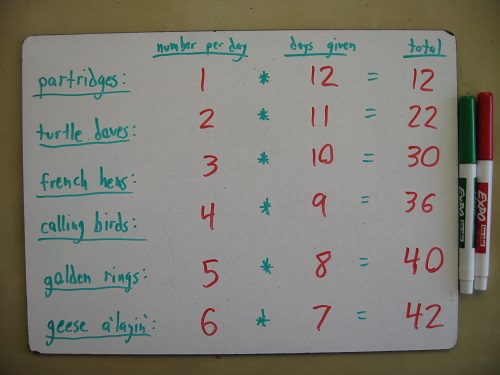 number per day days given total
partridges: 1 * 12 = 12
turtle doves: 2 * 11 = 22
french hens: 3 * 10 = 30
calling birds: 4 * 9 = 36
golden rings: 5 * 8 = 40
geese a'layin': 6 * 7 = 42
EXPO
EXPO